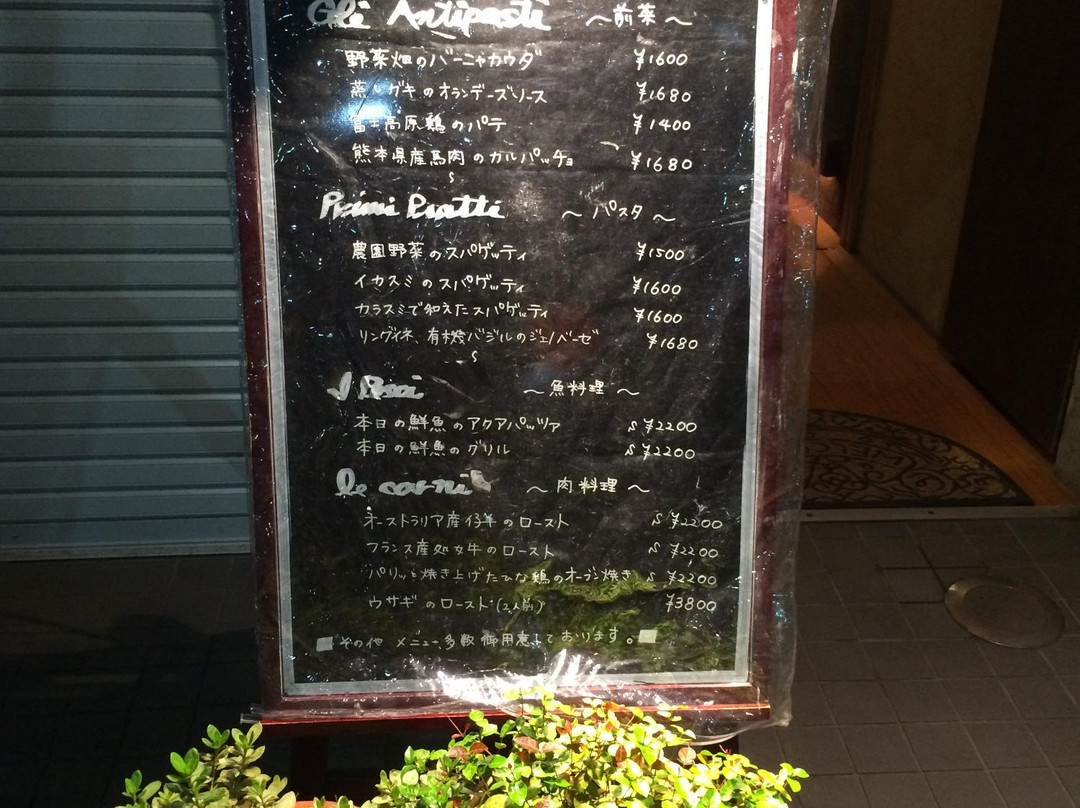 Gli Antipasti ～前菜～
野菜畑のバーニャカウダ ¥1600
蒸しガキのオランデーズソース ¥1680
富士高原鶏のパテ ¥1400
熊本県産馬肉のカルパッチョ ¥1680
Primi Piatti ～パスタ～
農園野菜のスパゲッティ ¥1500
イカスミのスパゲッティ ¥1600
カラスミで和えたスパゲッティ ¥1600
リングイネ、有機バジルのジェノベーゼ ¥1680
I Pesci ～魚料理～
本日の鮮魚のアクアパッツァ ¥2200
本日の鮮魚のグリル ¥2200
le carni ～肉料理～
オーストラリア産仔羊のロースト ¥2200
フランス産処女牛のロースト ¥2200
パリッと焼き上げたひな鶏のオーブン焼き ¥2200
ウサギのロースト(2人前) ¥3800
その他メニュー多数御用意しております。